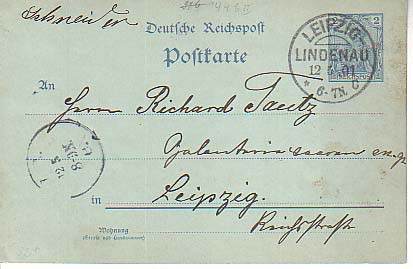 Schneider
Deutsche Reichspost
Postkarte
2
LEIPZIG-
LINDENAU
12 5 01
* 6-7N. C
An
Herrn Richard Tautz
Galanteriewaaren
in Leipzig.
Wohnung
(Straße und Hausnummer)
Reichsstraße